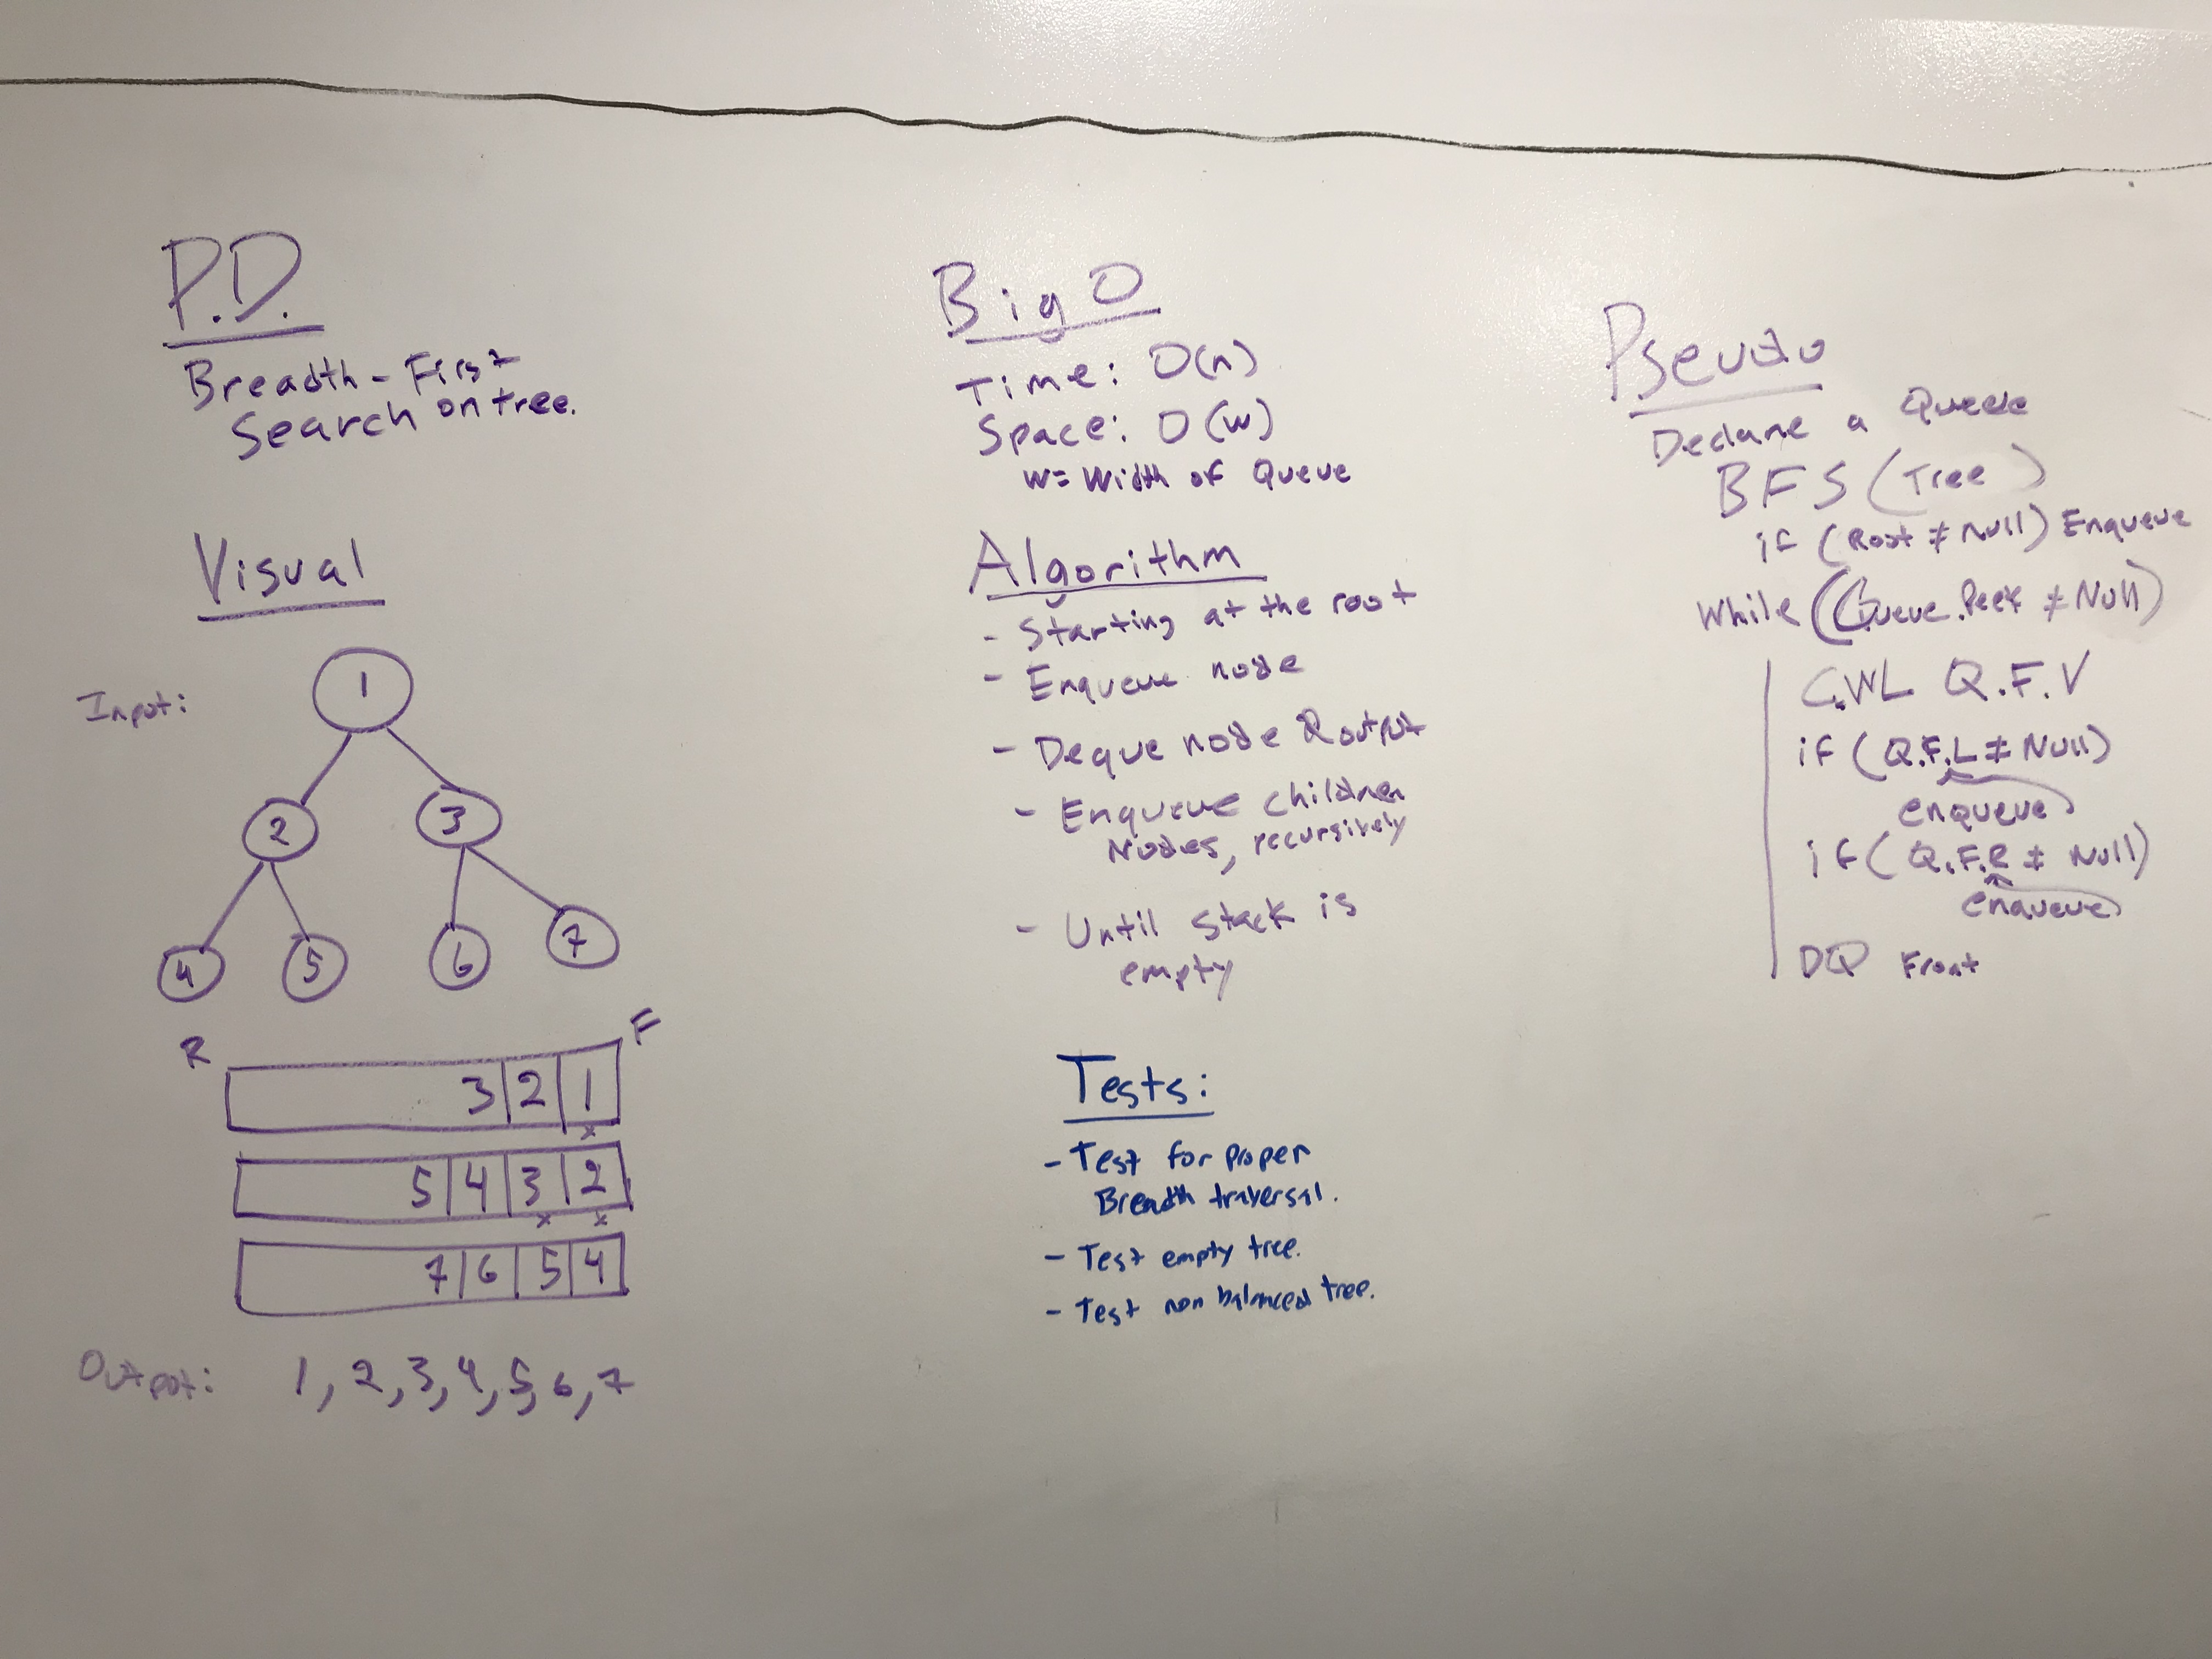 P.D.
Breadth - First
Search on tree.
Visual
Input:
1
2 3
4 5 6 7
R F
3 2 1
x
5 4 3 2
x x
7 6 5 4
Output: 1, 2, 3, 4, 5, 6, 7
Big O
Time: O(n)
Space: O(w)
w= Width of Queue
Algorithm
- Starting at the root
- Enqueue node
- Deque node & output
- Enqueue children
Nodes, recursively
- Until stack is
empty
Tests:
- Test for proper
Breadth traversal.
- Test empty tree.
- Test non balanced tree.
Pseudo
Declare a Queue
BFS (Tree)
if (Root ≠ Null) Enqueue
While (Queue.Peek ≠ Null)
C.WL Q.F.V
if (Q.F.L ≠ Null)
enqueue
if (Q.F.R ≠ Null)
enqueue
DQ Front